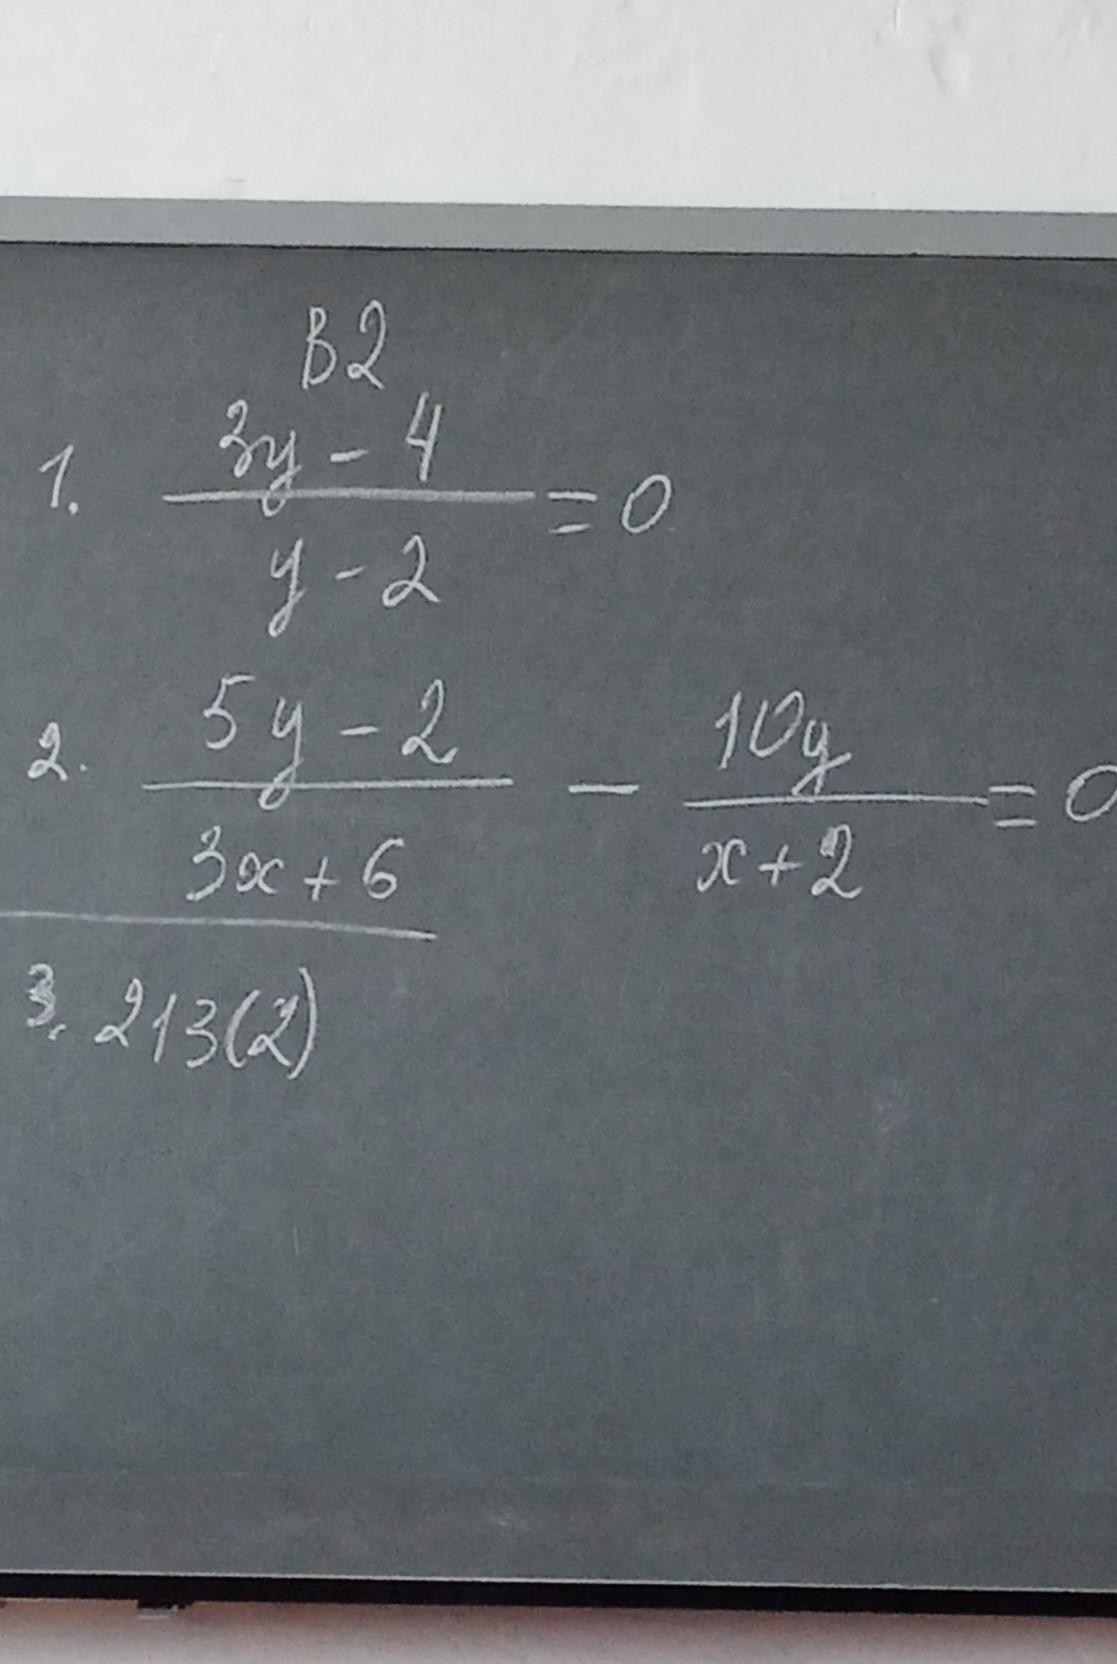 В2
1. 3y - 4 / y - 2 = 0
2. 5y - 2 / 3x + 6 - 10y / x + 2 = 0
3. 213(2)